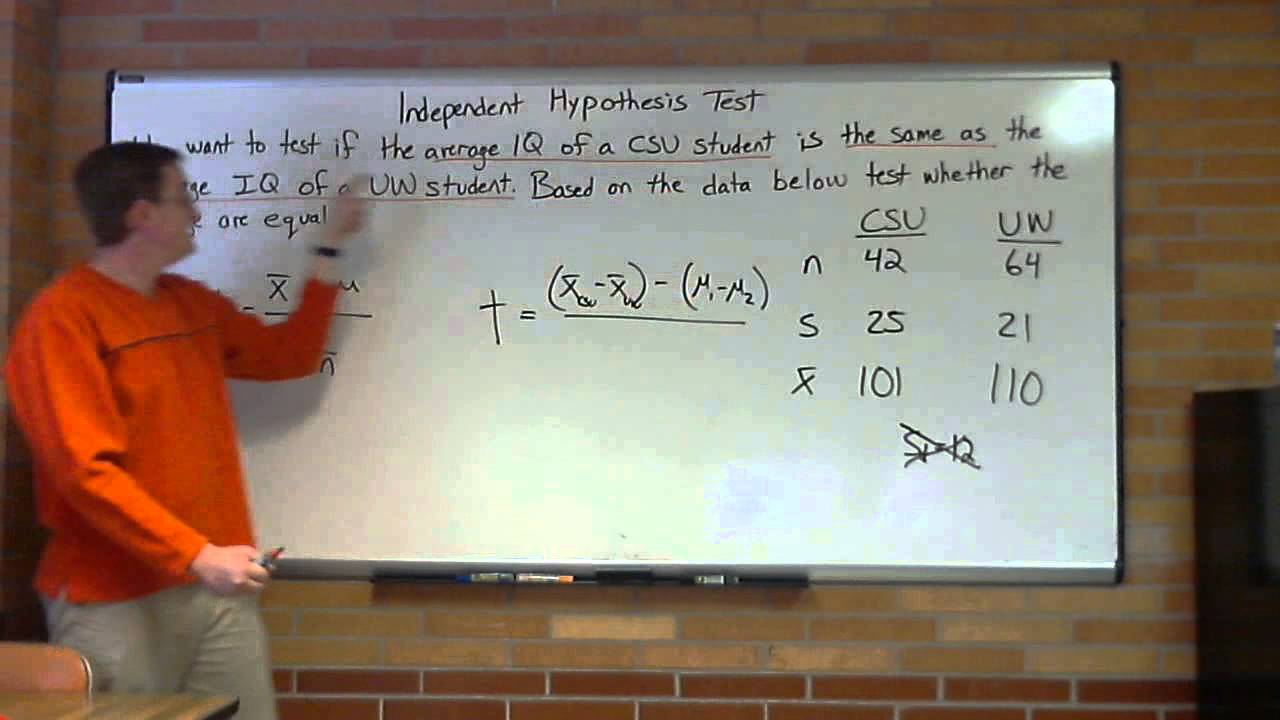 Independent Hypothesis Test
want to test if the average IQ of a CSU student is the same as the
IQ of a UW student. Based on the data below test whether the
are equal
CSU UW
n 42 64
s 25 21
x̄ 101 110
t = (x̄ - x̄ ) - (μ₁-μ₂)
x̄ μ
n